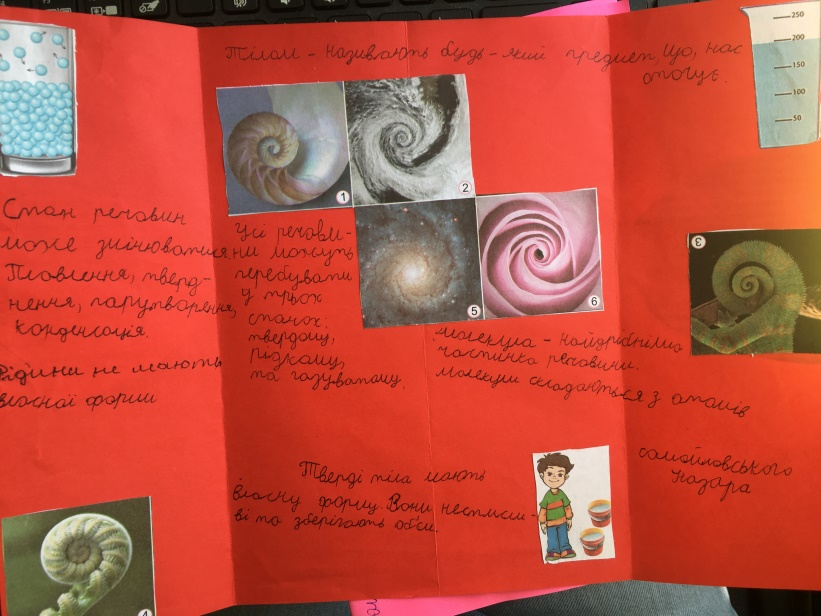 Тілом - називають будь-який предмет, що, нас
оточує.
250
200
150
100
50
1
2
5
6
3
4
Стан речовин
може змінюватися.
Плавлення, тверд-
нення, паротворення,
конденсація.
Рідини не мають
власної форми
Усі речови-
ни можуть
перебувати
у трьох
станах:
твердому,
рідкому,
та газуватому.
молекула - найдрібніша
частинка речовини.
Молекули складаються з атомів
Тверді тіла мають
власну форму. Вони нестисли-
ві та зберігають об'єм.
Самойловського
Назара